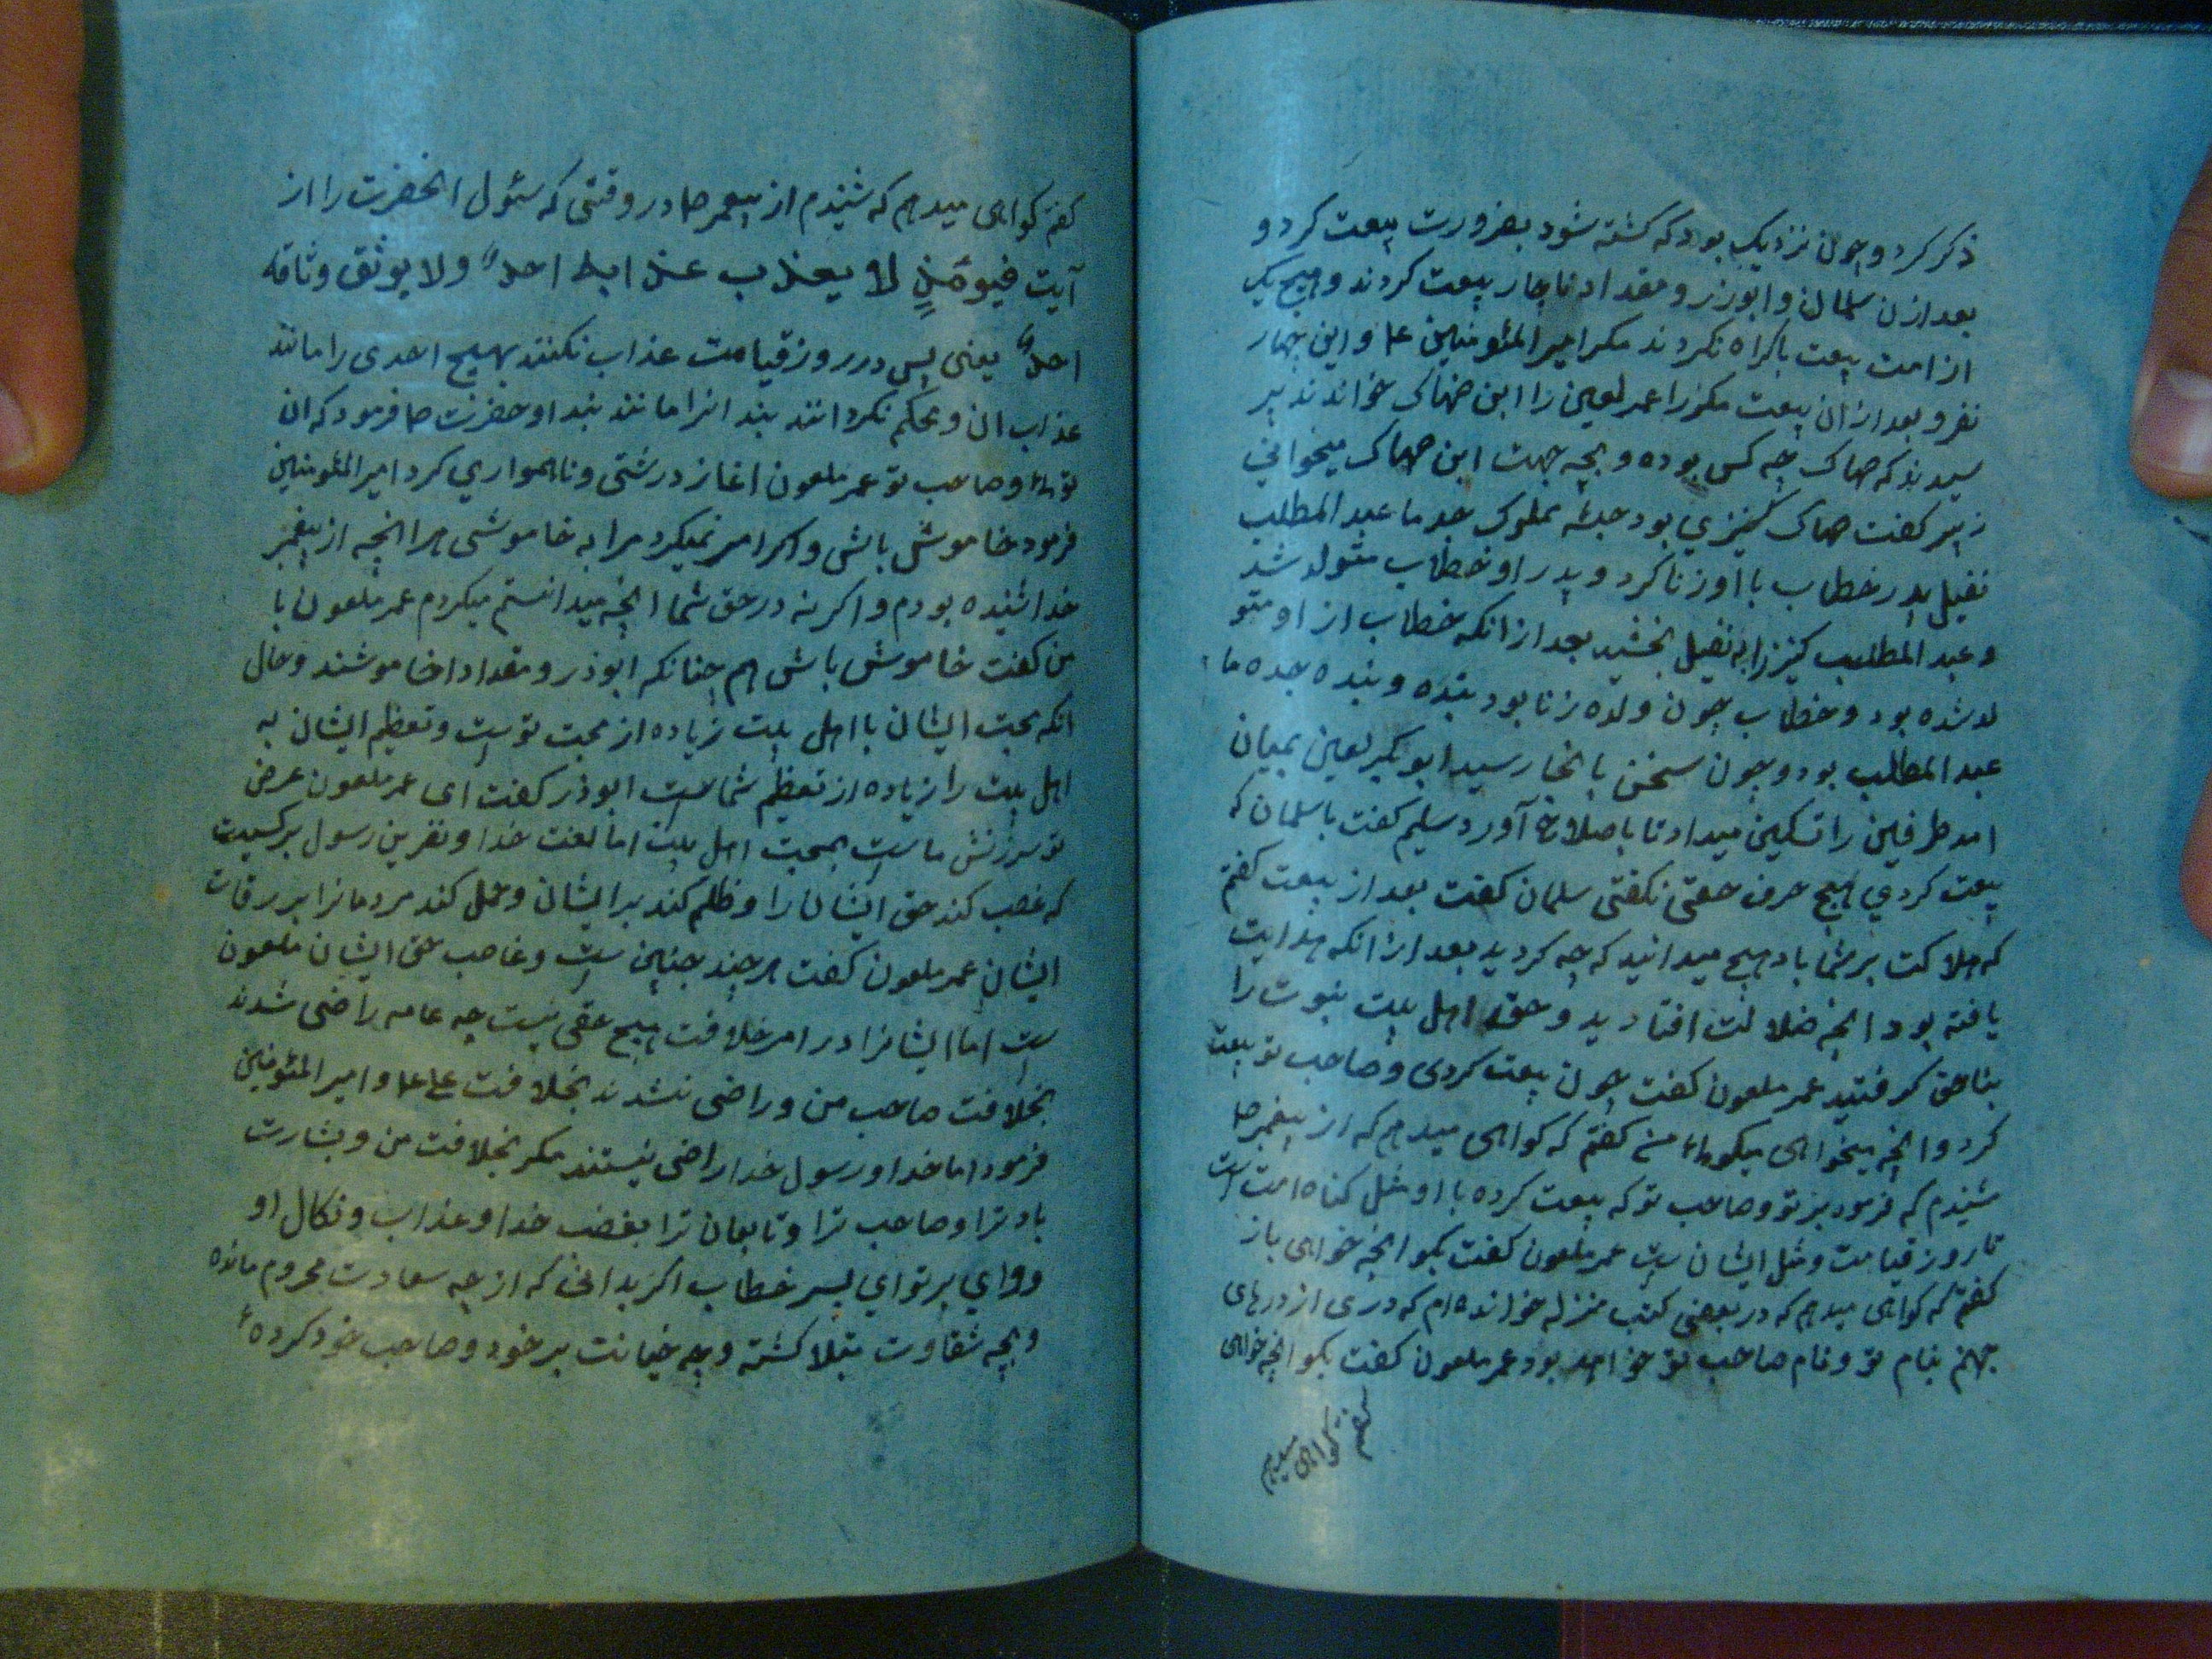 ذکر کرد و چون نزدیک بود که کشته شود بضرورت بیعت کرد و
بعد ازن سلمان و ابوزر و مقداد ناچار بیعت کردند و هیچ یک
از امت بیعت باکراه نکردند مکر امیر المئومنین عا و این چهار
نفر و بعد از ان بیعت مکرز را عمر لعین را ابن ضهاک خواندند پر
سیدند که صهاک چه کس بوده و بچه جهت ابن صهاک میخوانی
زبیر کفت صهاک کنیزی بود حبشه مملوک جد ما عبد المطلب
نفیل پدر خطاب با او زنا کرد و پدر او خطاب متولد شد
و عبد المطلب کنیز را به نفیل بخشید بعد از انکه خطاب از او متو
لد شده بود و خطاب چون ولده زنا بود بنده و بنده جده ما
عبد المطلب بود و چون سخن با نجا رسید ابو بکر لعین بمیان
امد طرفین را تسکین میداد تا باصلاح آورد سلیم کفت با سلمان که
بیعت کردی هیچ حرف حقی نکفتی سلمان کفت بعد از بیعت کفتم
که هلاکت بر شما باد هیچ میدانید که چه کردید بعد از انکه هدایت
یافته بود انچه ضلالت افتادید و حق اهل بیت نبوت را
بناحق کرفتید عمر ملعون کفت چون بیعت کردی و صاحب تو بیعت
کرد و انچه میخواهی میکو من کفتم که کواهی میدهم که از پیغمبر صا
شنیدم که فرمود بر تو و صاحب تو که بیعت کرده با او مثل کناه امت است
تا روز قیامت و مثل ایشان ست عمر ملعون کفت بکو انچه خواهی باز
کفتم که کواهی میدهم که در بعضی کتب منزله خوانده ام که دری از درهای
جهنم بنام تو و نام صاحب تو خواهد بود عمر ملعون کفت بکو انچه خواهی
کفتم کواهی میدهم
کفتم کواهی میدهم که شنیدم از پیغمبر صا در وقتی که سئول انحضرت را از
آیت فیومئذٍ لا یعذب عذابه احدٌ ولا یوثق وثاقه
احدٌ یعنی پس در روز قیامت عذاب نکنند بهیچ احدی را مانند
عذاب ان و محکم نکردانند بند انرا مانند بند او حضرت صا فرمود که ان
توئی و صاحب تو عمر ملعون اغاز درشتی و ناهمواری کرد امیر المئومنین
فرمود خاموش باش و اکر امر نمیکرد مرا به خاموشی هر انچه از پیغمبر
خدا شنیده بودم و اکر نه در حق شما انچه میدانستم میکردم عمر ملعون با
من کفت خاموش باش هم چنانکه ابوذر و مقداد اخاموشند و حال
انکه محبت ایشان با اهل بیت زیاده از محبت توست و تعظیم ایشان به
اهل بیت را زیاده از تعظیم شماست ابوذر کفت ای عمر ملعون عرض
تو سرزنش ماست بمحبت اهل بیت اما لعنت خدا و نفرین رسول بر کسیست
که غصب کند حق ایشان را و ظلم کند بر ایشان و حمل کند مردمانرا بر رقاب
ایشان عمر ملعون کفت هر چند چنین ست و غاصب حق ایشان ملعون
ست اما ایشانرا در امر خلافت هیچ حقی نیست چه عامه راضی شدند
بخلافت صاحب من و راضی نشدند بخلافت علی عا و امیر المئومنین
فرمود اما خدا و رسول خدا راضی نیستند مکر بخلافت من و بشارت
باد ترا و صاحب ترا و تابعان ترا بغضب خدا و عذاب و نکال او
و وای بر تو ای پسر خطاب اکر بدانی که از چه سعادت محروم مانده
و بچه شقاوت مبتلا کشته و بچه خیانت بر خود و صاحب خود کرده